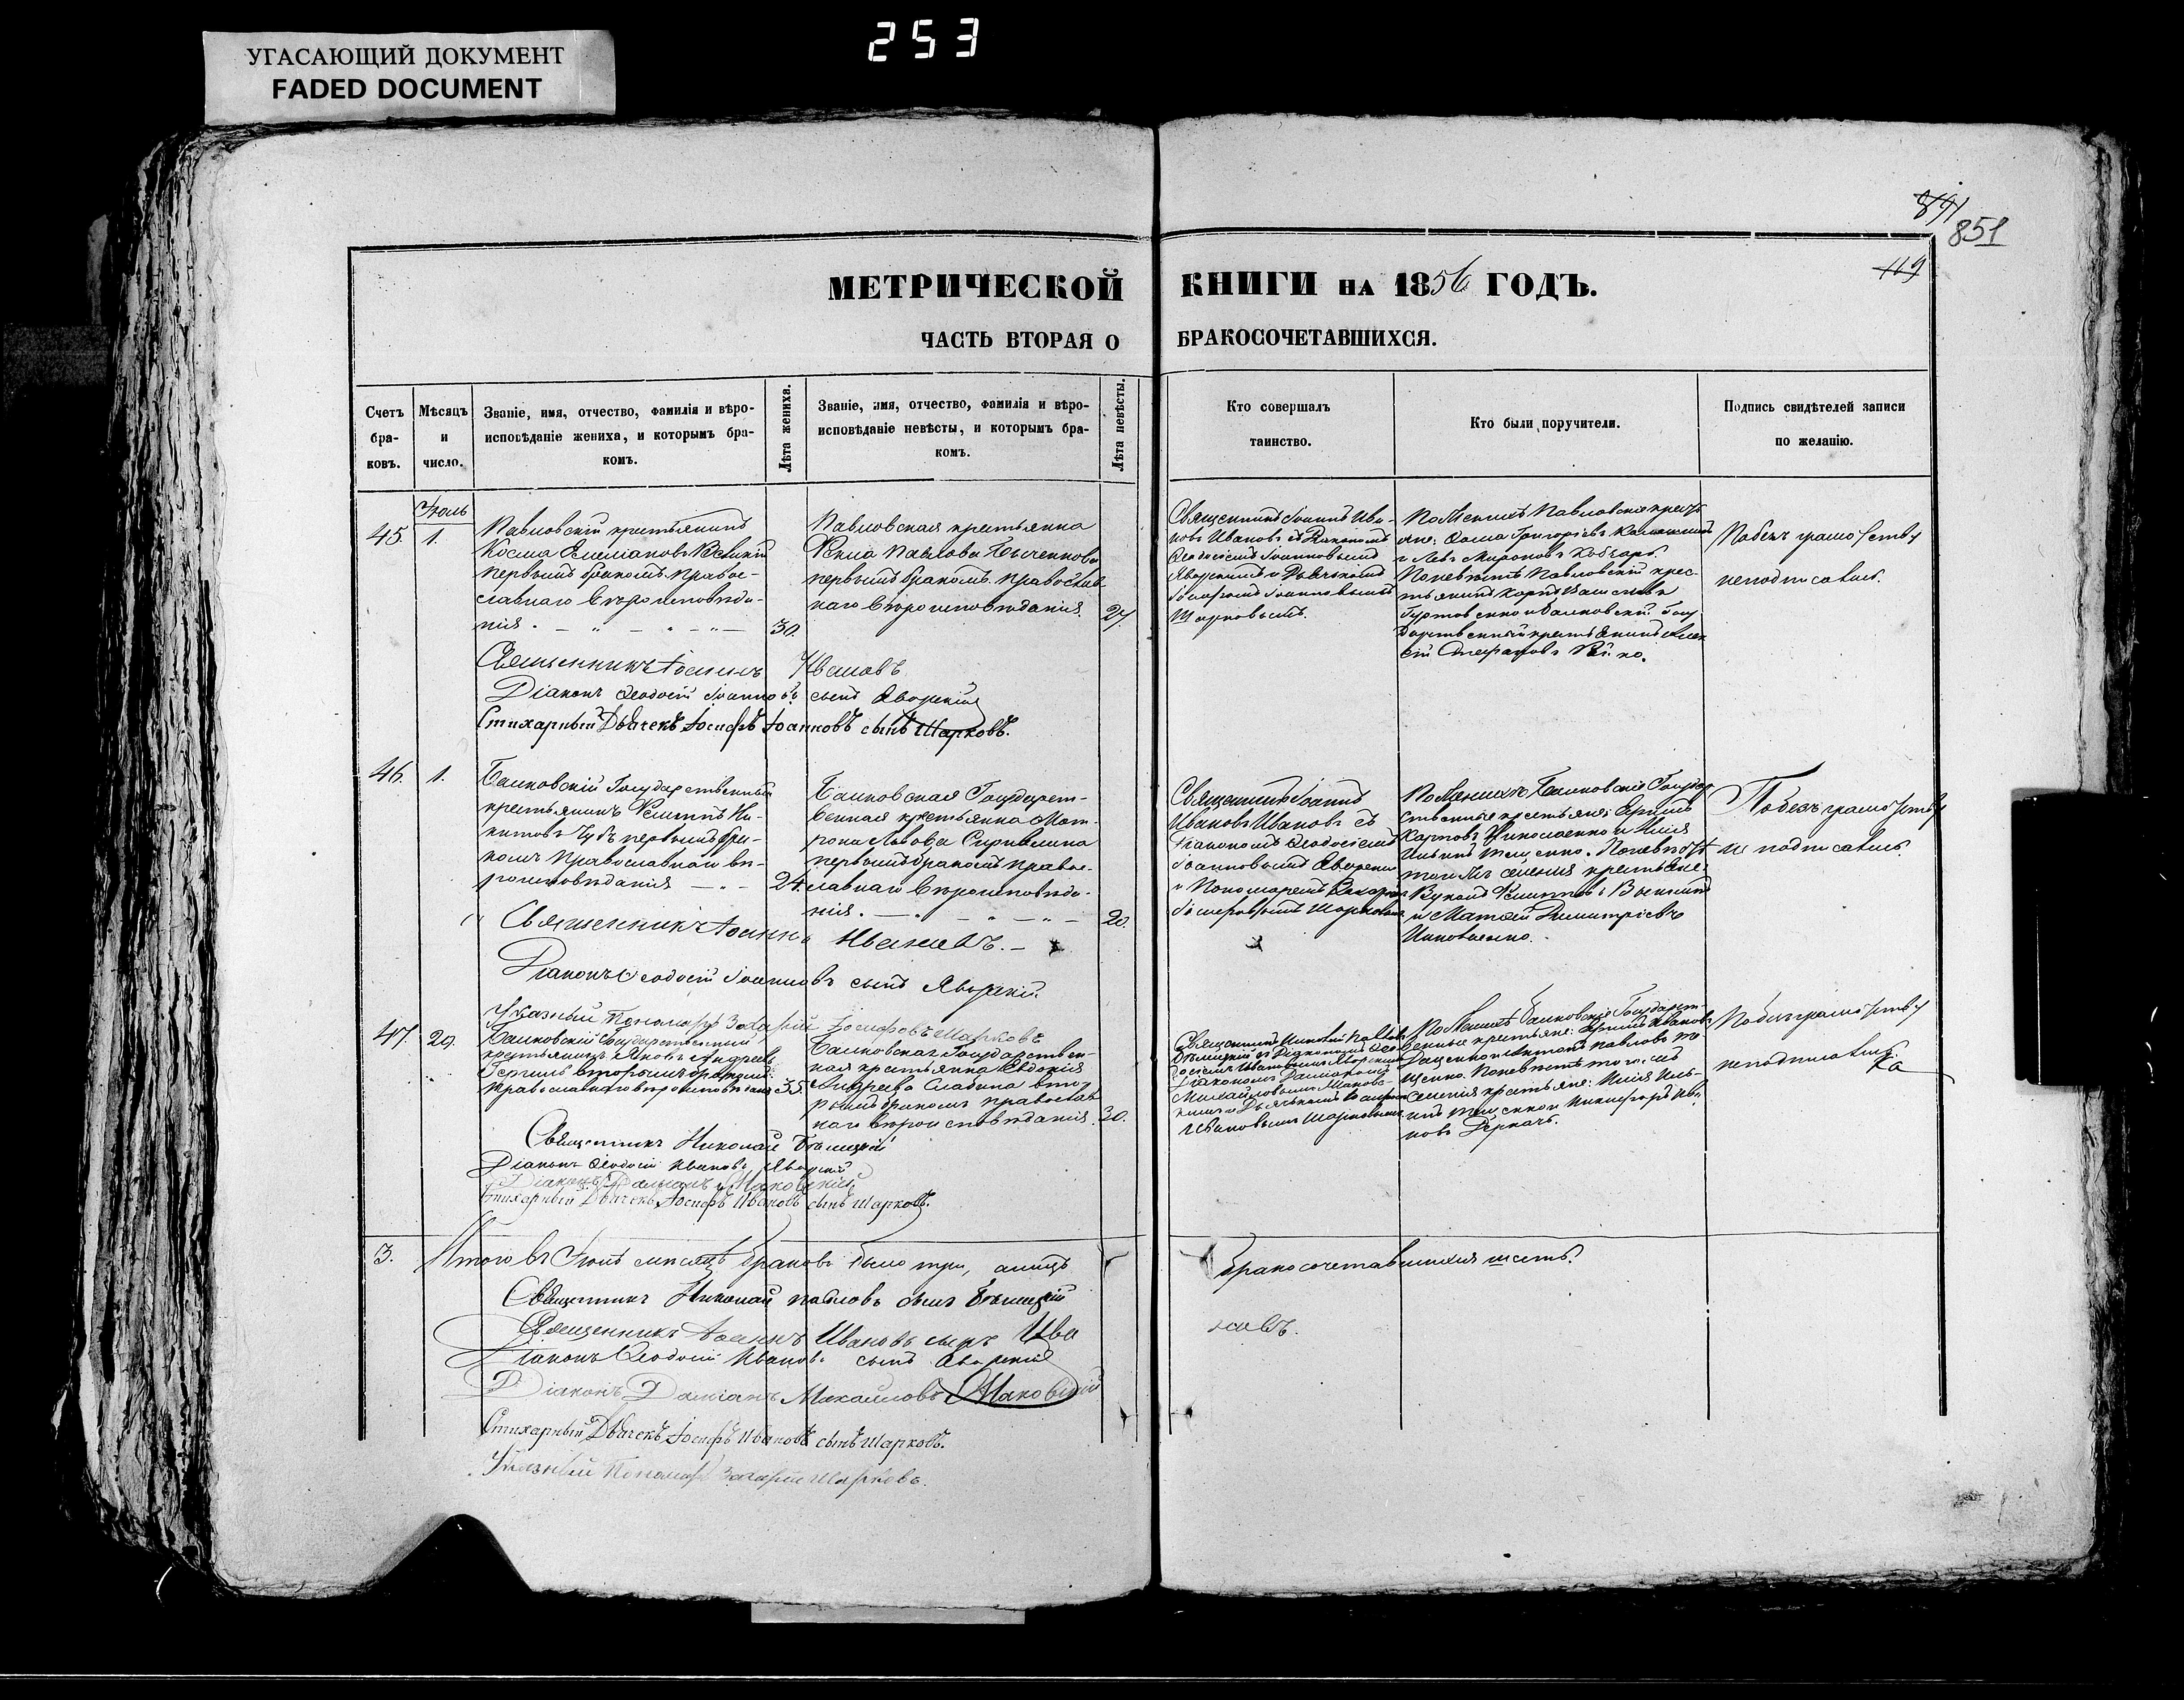 253
УГАСАЮЩИЙ ДОКУМЕНТ
FADED DOCUMENT
851
119
МЕТРИЧЕСКОЙ КНИГИ НА 1856 ГОДЪ.
ЧАСТЬ ВТОРАЯ О БРАКОСОЧЕТАВШИХСЯ.
Счетъ бра-ковъ.
Мѣсяцъ и число.
Званіе, имя, отчество, фамилія и вѣро-
исповѣданіе жениха, и которымъ бра-
комъ.
Лѣта жениха.
Званіе, имя, отчество, фамилія и вѣро-
исповѣданіе невѣсты, и которымъ бра-
комъ.
Лѣта невѣсты.
Кто совершалъ
таинство.
Кто были поручители.
Подпись свидѣтелей записи
по желанію.
45. 1.
Павловскій крестьянинъ
Косма Емелiановъ
первымъ бракомъ. Правос-
славнаго вѣроисповѣда-
нія. 30.
Павловская крестьянка
Павлова
первымъ бракомъ. православ-
наго вѣроисповѣданія. 27
Священникъ Іоаннъ Ива-
новъ Ивановъ съ Діакономъ
Ѳеодосіемъ Іоанновымъ
Яворскимъ и Дьячкомъ
Іосифомъ Іоанновымъ
Шарковымъ.
По Женихѣ Павловскіе крест
яне: Ѳома Григорьевъ
и Левъ Мироновъ Кобзарь.
По невѣстѣ Павловскій крес-
тьянинъ
Государственный крестьянинъ
По безграмотству
неподписались.
Священникъ Іоаннъ Ивановъ
Діаконъ Ѳеодосій Іоанновъ сынъ Яворскій
Стихарный Дьячекъ Іосифъ Іоанновъ сынъ Шарковъ.
46. 1.
Государственный
крестьянинъ Ни-
китовъ Чубъ первымъ бра-
комъ Православнаго вѣ-
роисповѣданія 24.
Государст-
венная крестьянка Мат-
рона Львова
первымъ бракомъ Правос-
лавнаго вѣроисповѣда-
нія. 20.
Священникъ Іоаннъ
Ивановъ Ивановъ съ
Діакономъ Ѳеодосіемъ
Іоанновымъ Яворским
и Пономаремъ Захаріемъ
Іосифовымъ Шарковымъ
По Женихѣ Государ
ственные крестьяне:
Карповъ Николаенко и Илія
Ильинъ Тищенко. По невѣстѣ
того жъ селенія крестьяне:
и Матѳій Димитріевъ
По безграмотству
не подписались.
Священникъ Іоаннъ Ивановъ.
Діаконъ Ѳеодосій Іоанновъ сынъ Яворскій
Указный Пономарь Захарій Іосифовъ Шарковъ
47. 20.
Государственный
крестьянинъ Яковъ Андреевъ
вторымъ бракомъ.
Православнаго вѣроисповѣданія 35.
Государствен-
ная крестьянка Евдокія
Андреева вто-
рымъ бракомъ православ
наго вѣроисповѣданія. 30.
Священникъ Николай Павловъ
съ Діакономъ Ѳео-
досіемъ Ивановымъ Яворскимъ
Діакономъ Даміаномъ
Михайловымъ Маковс-
кимъ и Дьячкомъ Іосифомъ
Ивановымъ Шарковымъ
По Женихѣ Государст-
венные крестьяне: Ивановъ
Павловъ Ти
щенко. По невѣстѣ того жъ
селенія крестьяне: Илія Иль-
инъ Тищенко и Никифоръ Ива
новъ Деркачъ.
По безграмотству
неподписались.
Священникъ Николай
Діаконъ Ѳеодосій Ивановъ Яворскій
Діаконъ Даміанъ Маковскій
Стихарный Дьячекъ Іосифъ Ивановъ сынъ Шарковъ.
3. Итого въ мѣсяцѣ браковъ было три, а лицъ бракосочетавшихся шесть.
Священникъ Николай Павловъ сынъ
Священникъ Іоаннъ Ивановъ сынъ Ивановъ.
Діаконъ Ѳеодосій Ивановъ сынъ Яворскій
Діаконъ Даміанъ Михайловъ Маковскій
Стихарный Дьячекъ Іосифъ Ивановъ сынъ Шарковъ.
Указный Пономарь Захарій Шарковъ.